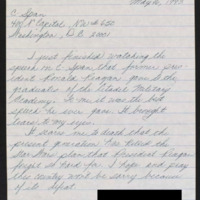 May 16, 1993
C-Span
400 N Capitol NW #650
Washington D.C. 20001
I just finished watching the
speech on C-Span, that former pres-
ident Ronald Reagan gave to the
graduates of the Citadel Military
Academy. To me it was the best
speech he ever gave. It brought
tears to my eyes.
It scares me to death that the
present generation has killed the
Star Wars plan that President Reagan
fought so hard for. I hope and pray
this country won't be sorry because
of it. What